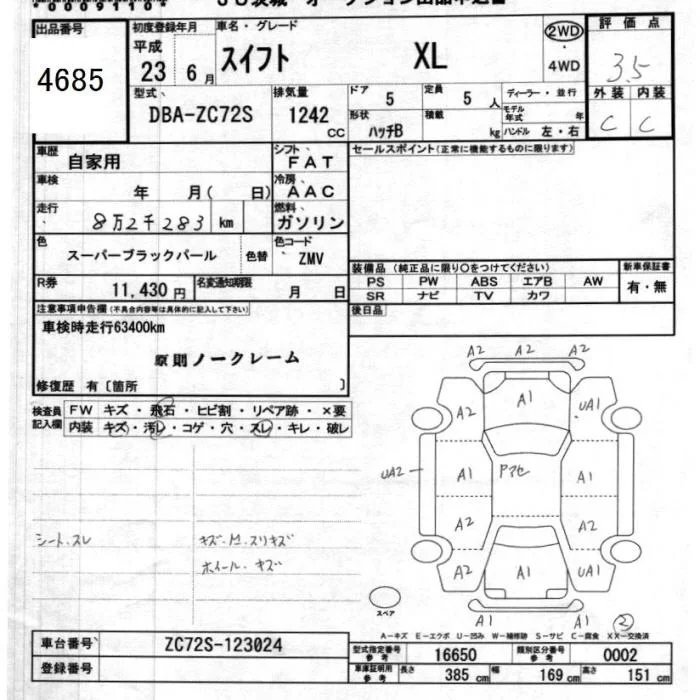 出品番号
4685
初度登録年月
平成
23 6月
車名・グレード
スイフト XL
2WD
・
4WD
評価点
3.5
外装 内装
C C
型式
DBA-ZC72S
排気量
1242
CC
ドア 5
定員 5 人
形状 ハッチB
積載 kg
ディーラー・並行
モデル年式 年
ハンドル 左・右
車歴
自家用
シフト
FAT
車検
年 月( 日)
冷房
AAC
走行
8万2千283 km
燃料
ガソリン
色
スーパーブラックパール
色替
色コード
ZMV
R券
11,430円
名変通知期限
月 日
セールスポイント(正常に機能するものに限ります)
装備品 (純正品に限り〇をつけてください)
PS PW ABS エアB AW
SR ナビ TV カワ
新車保証書
有・無
後日品
注意事項申告欄(不具合内容等は具体的に記入して下さい)
車検時走行63400km
原則ノークレーム
修復歴 有〔箇所 〕
検査員記入欄
FW キズ・飛石・ヒビ割・リペア跡・×要
内装 キズ・汚レ・コゲ・穴・スレ・キレ・破レ
シート.スレ
キズ.凹.スリキズ
ホイール.キズ
A2 A2
A2 A1 UA1
UA2 A1 Pアセ A1
A2 A2
A2 A1 UA1
A1 A1 2
スペア
A-キズ E-エクボ U-凹み W-補修跡 S-サビ C-腐食 XX-交換済
車台番号
ZC72S-123024
登録番号
型式指定番号
参考
16650
類別区分番号
参考
0002
車庫証明用
参考
長さ 385 cm 幅 169 cm 高さ 151 cm